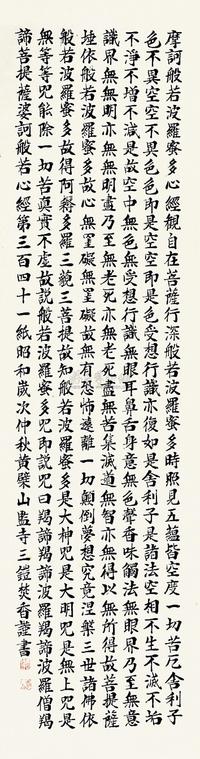 摩訶般若波羅蜜多心經觀自在菩薩行深般若波羅蜜多時照見五蘊皆空度一切苦厄舍利子
色不異空空不異色色即是空空即是色受想行識亦復如是舍利子是諸法空相不生不滅不垢
不淨不增不減是故空中無色無受想行識無眼耳鼻舌身意無色聲香味觸法無眼界乃至無意
識界無無明亦無無明盡乃至無老死亦無老死盡無苦集滅道無智亦無得以無所得故菩提薩
埵依般若波羅蜜多故心無罣礙無罣礙故無有恐怖遠離一切顛倒夢想究竟涅槃三世諸佛依
般若波羅蜜多故得阿耨多羅三藐三菩提故知般若波羅蜜多是大神咒是大明咒是無上咒是
無等等咒能除一切苦真實不虛故說般若波羅蜜多咒即說咒曰羯諦羯諦波羅羯諦波羅僧羯
諦菩提薩婆訶般若心經第三百四十一紙昭和歲次仲秋黃檗山監寺三鎧焚香謹書